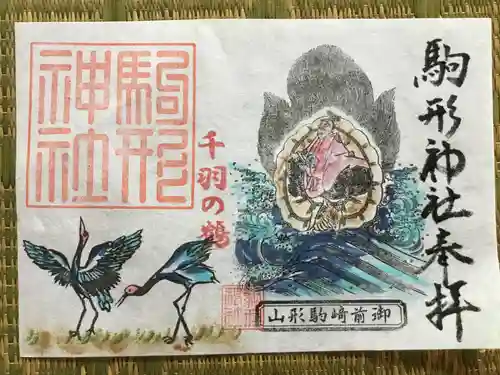 駒形神社奉拝
千羽の鶴
駒形
神社
山形駒崎前御